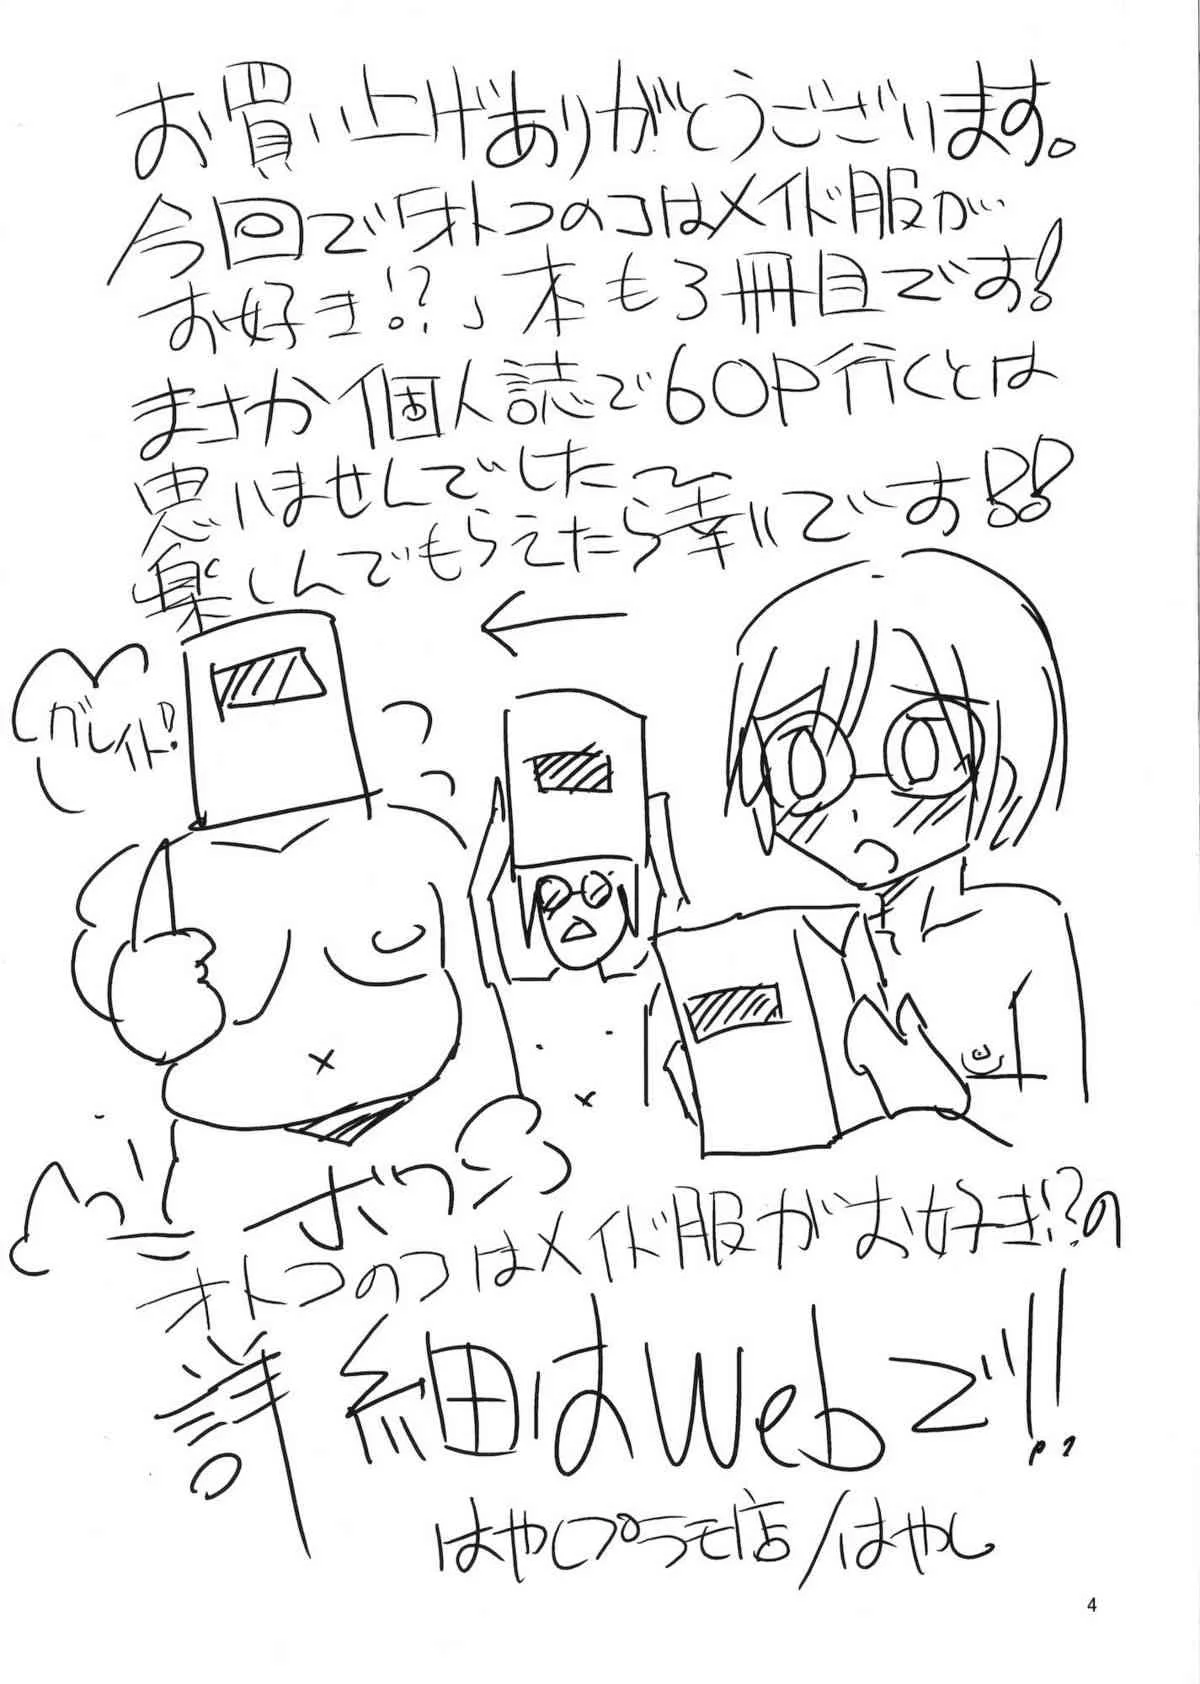 お買い上げありがとうございます。
今回で「オトコのコはメイド服が
お好き!?」本も3冊目です!
まさか個人誌で60P行くとは
思いませんでした〜
楽しんでもらえたら幸いです!!
←
ガレイト!
ボワン
オトコのコはメイド服がお好き!?の
詳細はWebで!!
はやしプラモ店/はやし
4